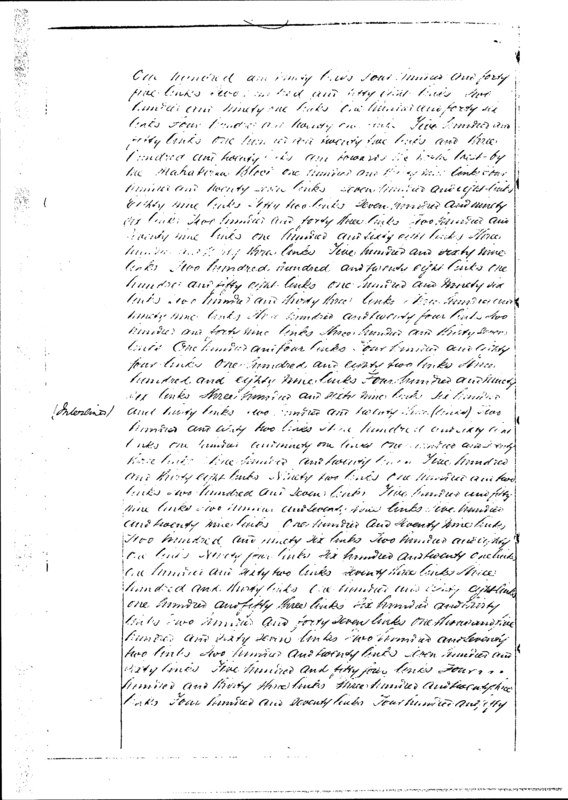 One hundred and ninety links Four hundred and forty
five links Two hundred and fifty eight links Two
hundred and ninety one links One hundred and forty six
links Four hundred and twenty one links Five hundred and
fifty links One hundred and twenty five links and three
hundred and twenty links and towards the North East by
the Block One hundred and nine links
hundred and twenty seven links Seven hundred and eight links
sixty nine links Fifty two links Seven hundred and ninety
six links Five hundred and forty three links Two hundred and
seventy nine links One hundred and sixty eight links Three
hundred and three links Five hundred and sixty nine
links Two hundred hundred and twenty eight links One
hundred and fifty eight links One hundred and ninety six
links Two hundred and thirty three links hundred and
ninety nine links hundred and twenty four links Two
hundred and forty nine links Three hundred and thirty seven
links One hundred and four links Four hundred and eighty
four links One hundred and eighty two links Three
hundred and eighty nine links Four hundred and ninety
six links Three hundred and sixty nine links Six hundred
(Interlined) and thirty links Two hundred and twenty three (links) Two
hundred and sixty two links Three hundred and sixty six
links One hundred and ninety one links One hundred and
three links hundred and twenty Five hundred
and thirty eight links Ninety two links One hundred and two
links Two hundred and seven links Five hundred and fifty
nine links Two hundred and seventy links Five hundred
and twenty nine links One hundred and seventy nine links
Two hundred and ninety six links Two hundred and eighty
one links Ninety four links Six hundred and twenty one links
One hundred and sixty two links Seventy three links Three
hundred and thirty links One hundred and eight links
One hundred and fifty three links Six hundred and thirty
links Two hundred and forty seven links One thousand
hundred and sixty seven links Two hundred and seventy
two links Two hundred and twenty links Seven hundred and
sixty links Five hundred and fifty four links Four
hundred and thirty three links Three hundred and twenty three
links Four hundred and seventy links Four hundred and fifty